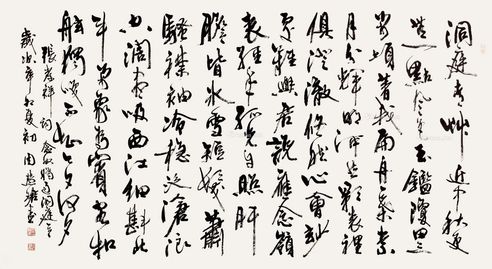 洞庭青草近中秋更
無一點風色玉鑑瓊田三
萬頃著我扁舟一葉素
月分輝明河共影表裡
俱澄澈悠然心會妙
處難與君說應念嶺
表經年孤光自照肝
膽皆冰雪短鬢蕭
騷襟袖冷穩泛滄浪
空闊盡吸西江細斟北
斗萬象為賓客扣
舷獨嘯不知今夕何夕
張孝祥詞念奴嬌過洞庭
歲次辛卯夏初周